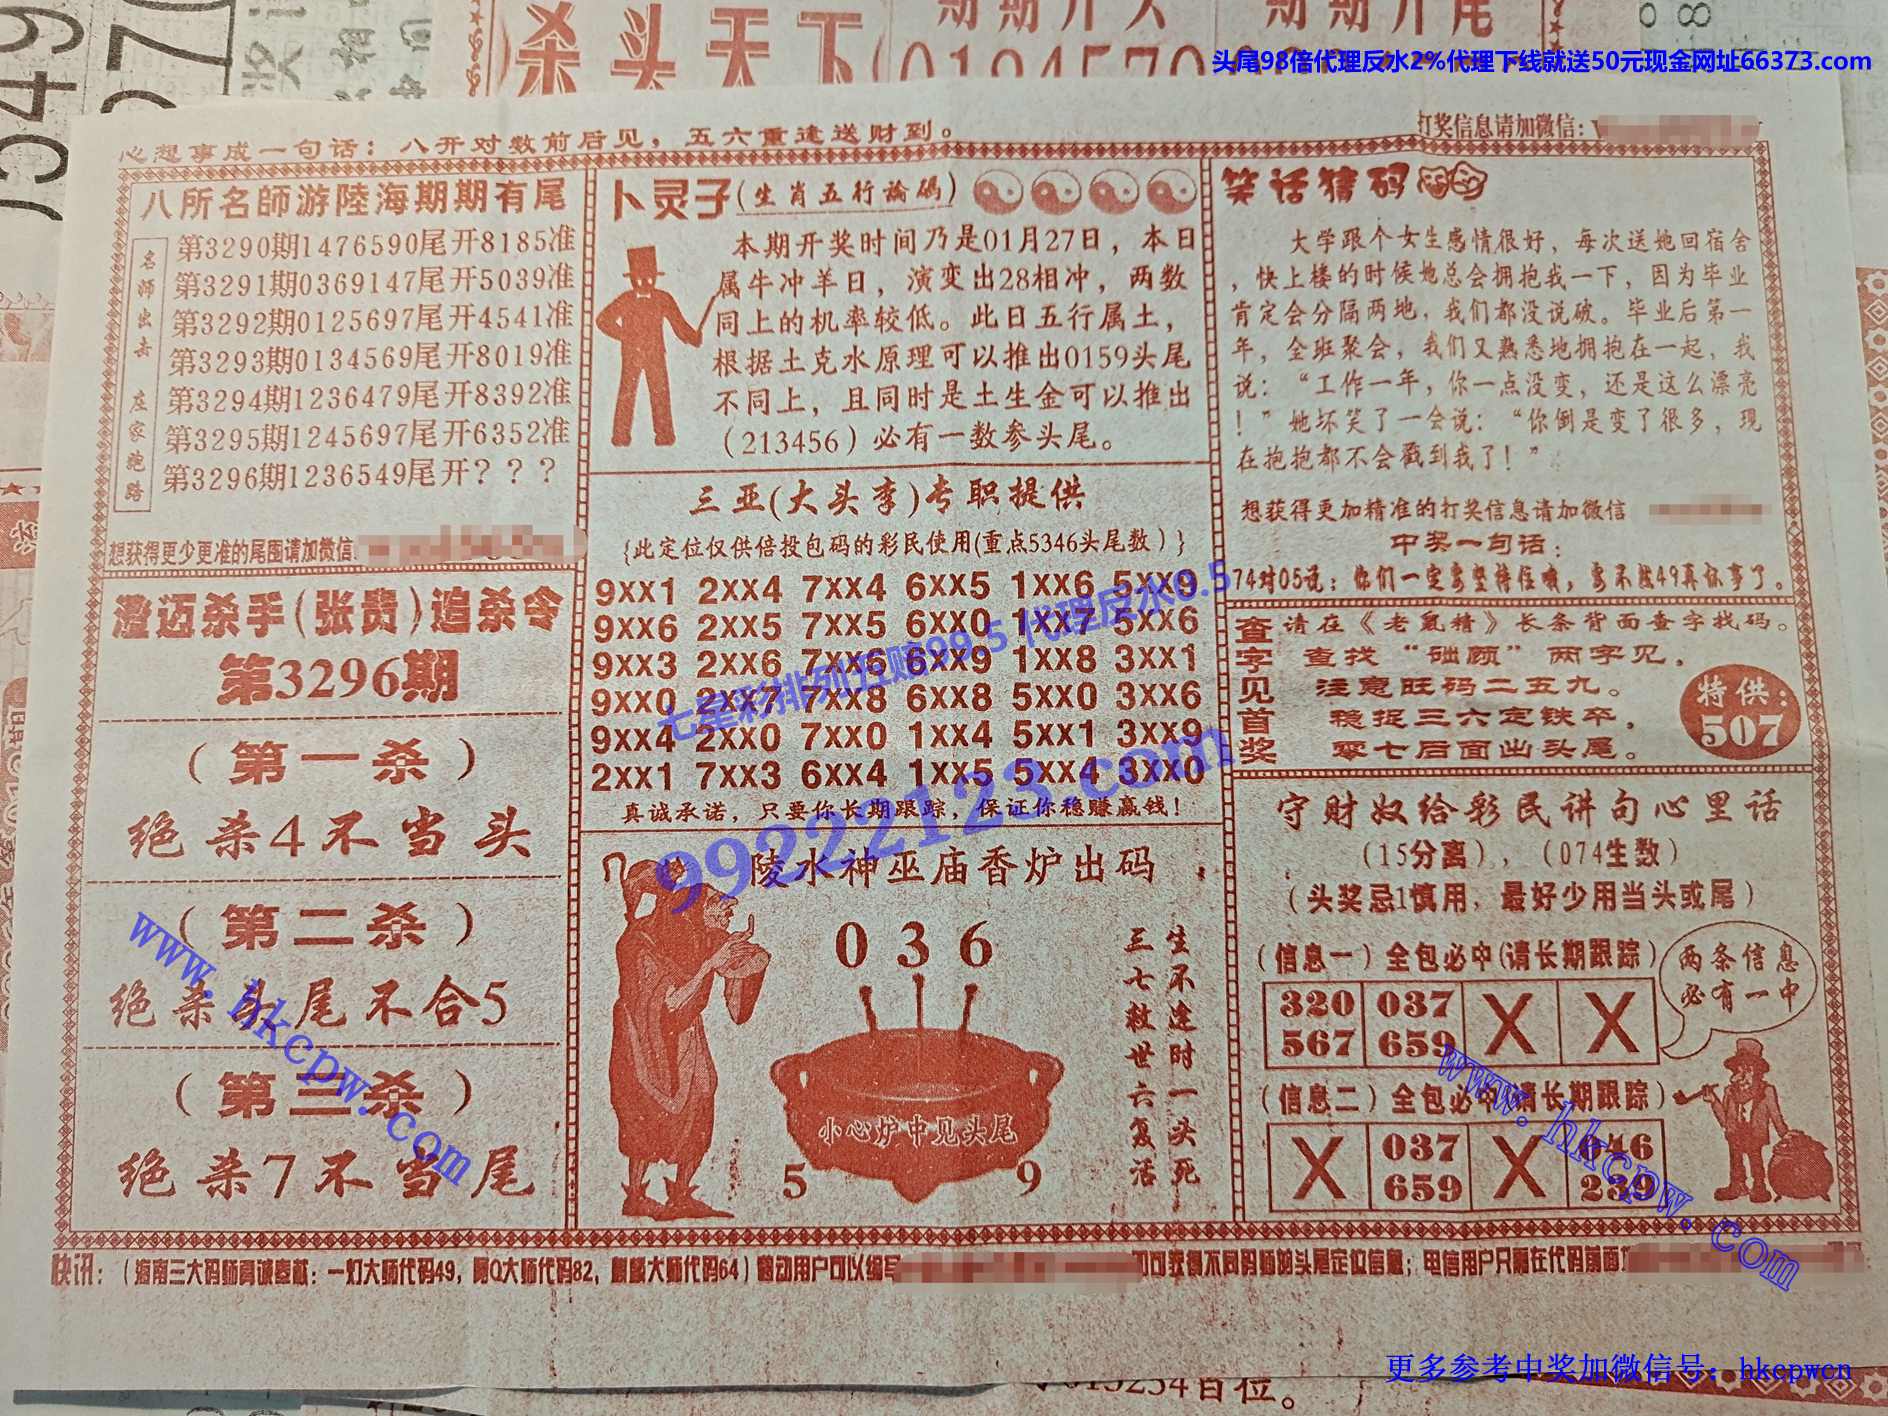 头尾98倍代理反水2%代理下线就送50元现金网址66373.com
杀头天下
心想事成一句话：八开对数前后见，五六重逢送财到。
打奖信息请加微信：
八所名師游陸海期期有尾
名師出击 庄家跑路
第3290期1476590尾开8185准
第3291期0369147尾开5039准
第3292期0125697尾开4541准
第3293期0134569尾开8019准
第3294期1236479尾开8392准
第3295期1245697尾开6352准
第3296期1236549尾开？？？
想获得更少更准的尾围请加微信
澄迈杀手(张贵)追杀令
第3296期
（第一杀）
绝杀4不当头
（第二杀）
绝杀头尾不合5
（第三杀）
绝杀7不当尾
卜灵子(生肖五行論碼)
本期开奖时间乃是01月27日，本日
属牛冲羊日，演变出28相冲，两数
同上的机率较低。此日五行属土，
根据土克水原理可以推出0159头尾
不同上，且同时是土生金可以推出
（213456）必有一数参头尾。
三亚(大头李)专职提供
{此定位仅供倍投包码的彩民使用(重点5346头尾数）}
9xx1 2xx4 7xx4 6xx5 1xx6 5xx9
9xx6 2xx5 7xx5 6xx0 1xx7 5xx6
9xx3 2xx6 7xx6 6xx9 1xx8 3xx1
9xx0 2xx7 7xx8 6xx8 5xx0 3xx6
9xx4 2xx0 7xx0 1xx4 5xx1 3xx9
2xx1 7xx3 6xx4 1xx5 5xx4 3xx0
真诚承诺，只要你长期跟踪，保证你稳赚赢钱！
七星彩排列五赔99.5 代理反水0.5
99222123.com
陵水神巫庙香炉出码
036
生不逢时一头死
三七救世六复活
小心炉中见头尾
5 9
笑话猜码
大学跟个女生感情很好，每次送她回宿舍
，快上楼的时候她总会拥抱我一下，因为毕业
肯定会分隔两地，我们都没说破。毕业后第一
年，全班聚会，我们又熟悉地拥抱在一起，我
说：“工作一年，你一点没变，还是这么漂亮
！”她坏笑了一会说：“你倒是变了很多，现
在抱抱都不会戳到我了！”
想获得更加精准的打奖信息请加微信
中奖一句话：
74对05说：你们一定要坚持住哦，要不然49真坏事了。
查字见首奖
请在《老鼠精》长条背面查字找码。
查找“础颜”两字见，
注意旺码二五九。
稳捉三六定铁卒，
零七后面出头尾。
特供：
507
守财奴给彩民讲句心里话
（15分离），（074生数）
（头奖忌1慎用，最好少用当头或尾）
（信息一）全包必中(请长期跟踪)
两条信息
必有一中
320 037 X X
567 659
（信息二）全包必中(请长期跟踪)
X 037 X 046
659 239
快讯：（海南三大码师真诚奉献：一灯大师代码49，阿Q大师代码82，麒麟大师代码64）移动用户可以编写
即可获得不同码师的头尾定位信息；电信用户只需在代码前面加
www.hkcpw.com
www.hkcpw.com
更多参考中奖加微信号：hkcpwcn